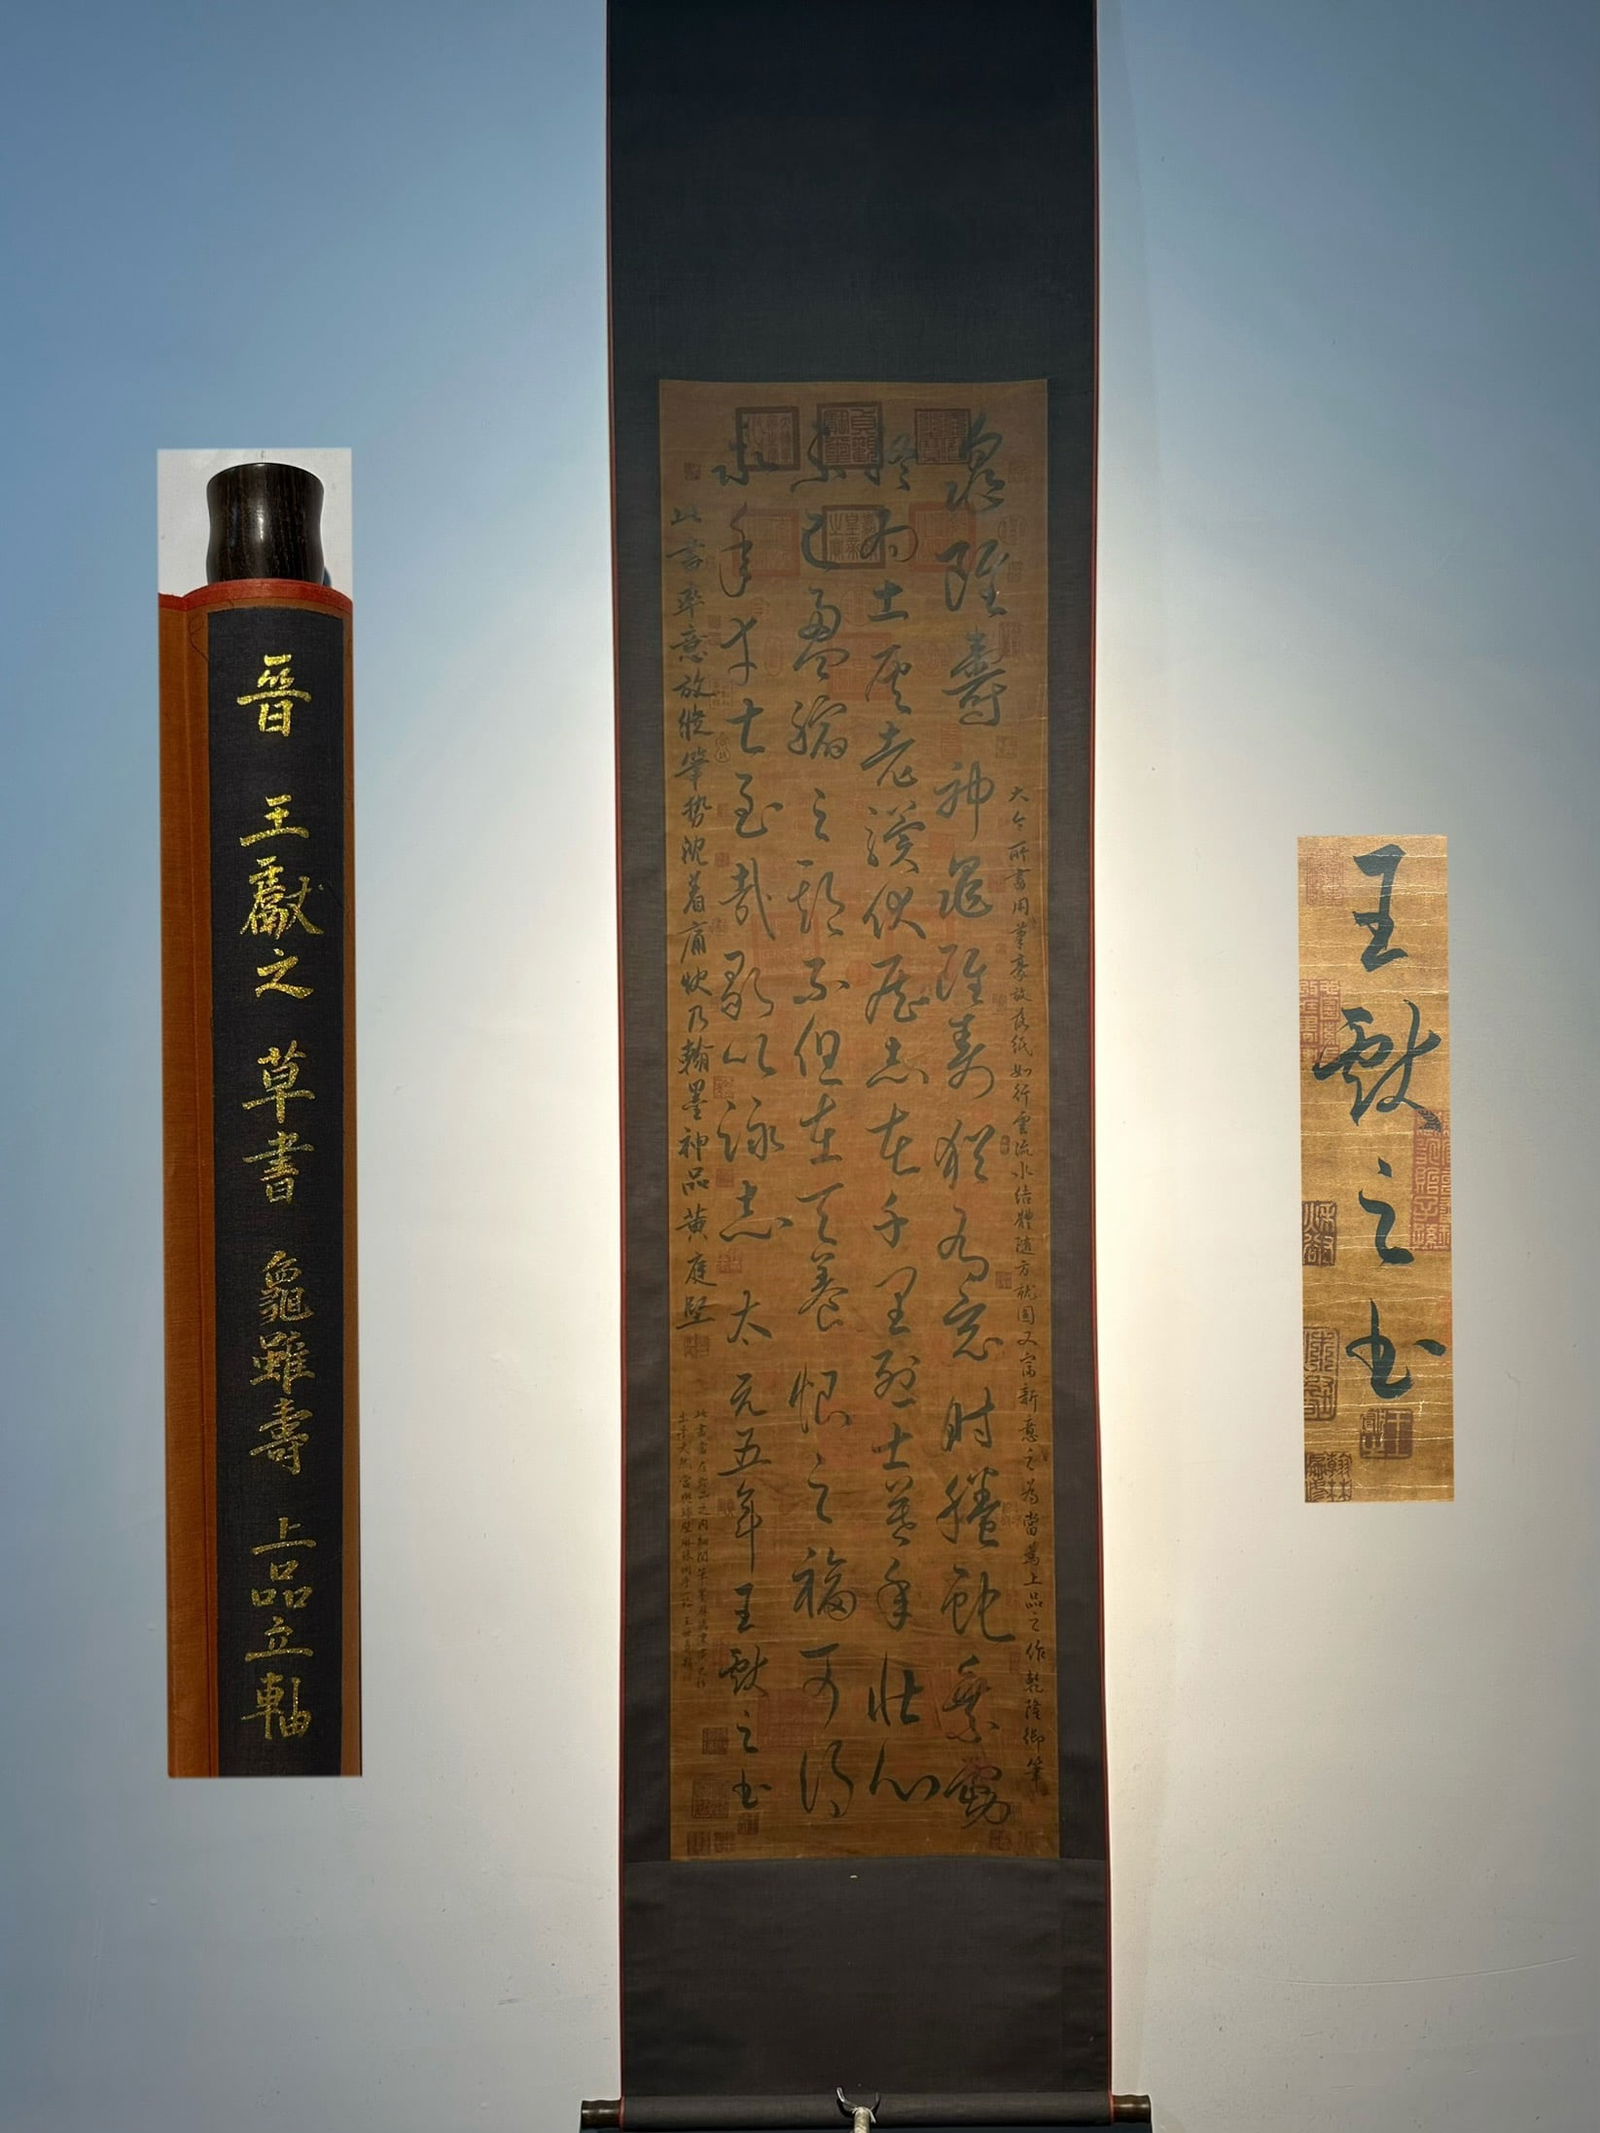 晉 王獻之 草書 龜雖壽 上品立軸
大令所書用筆豪放落紙如行雲流水結體隨方就圓又富新意之為當為上品之作乾隆御筆
龜雖壽 神龜雖壽猶有竟時騰蛇乘霧
終為土灰老驥伏櫪志在千里烈士暮年壯心
已盈縮之期不但在天養怡之福可得
永年幸甚至哉歌以詠志 太元五年王獻之書
此書率意放縱筆勢沈着痛快乃翰墨神品黃庭堅
王獻之書